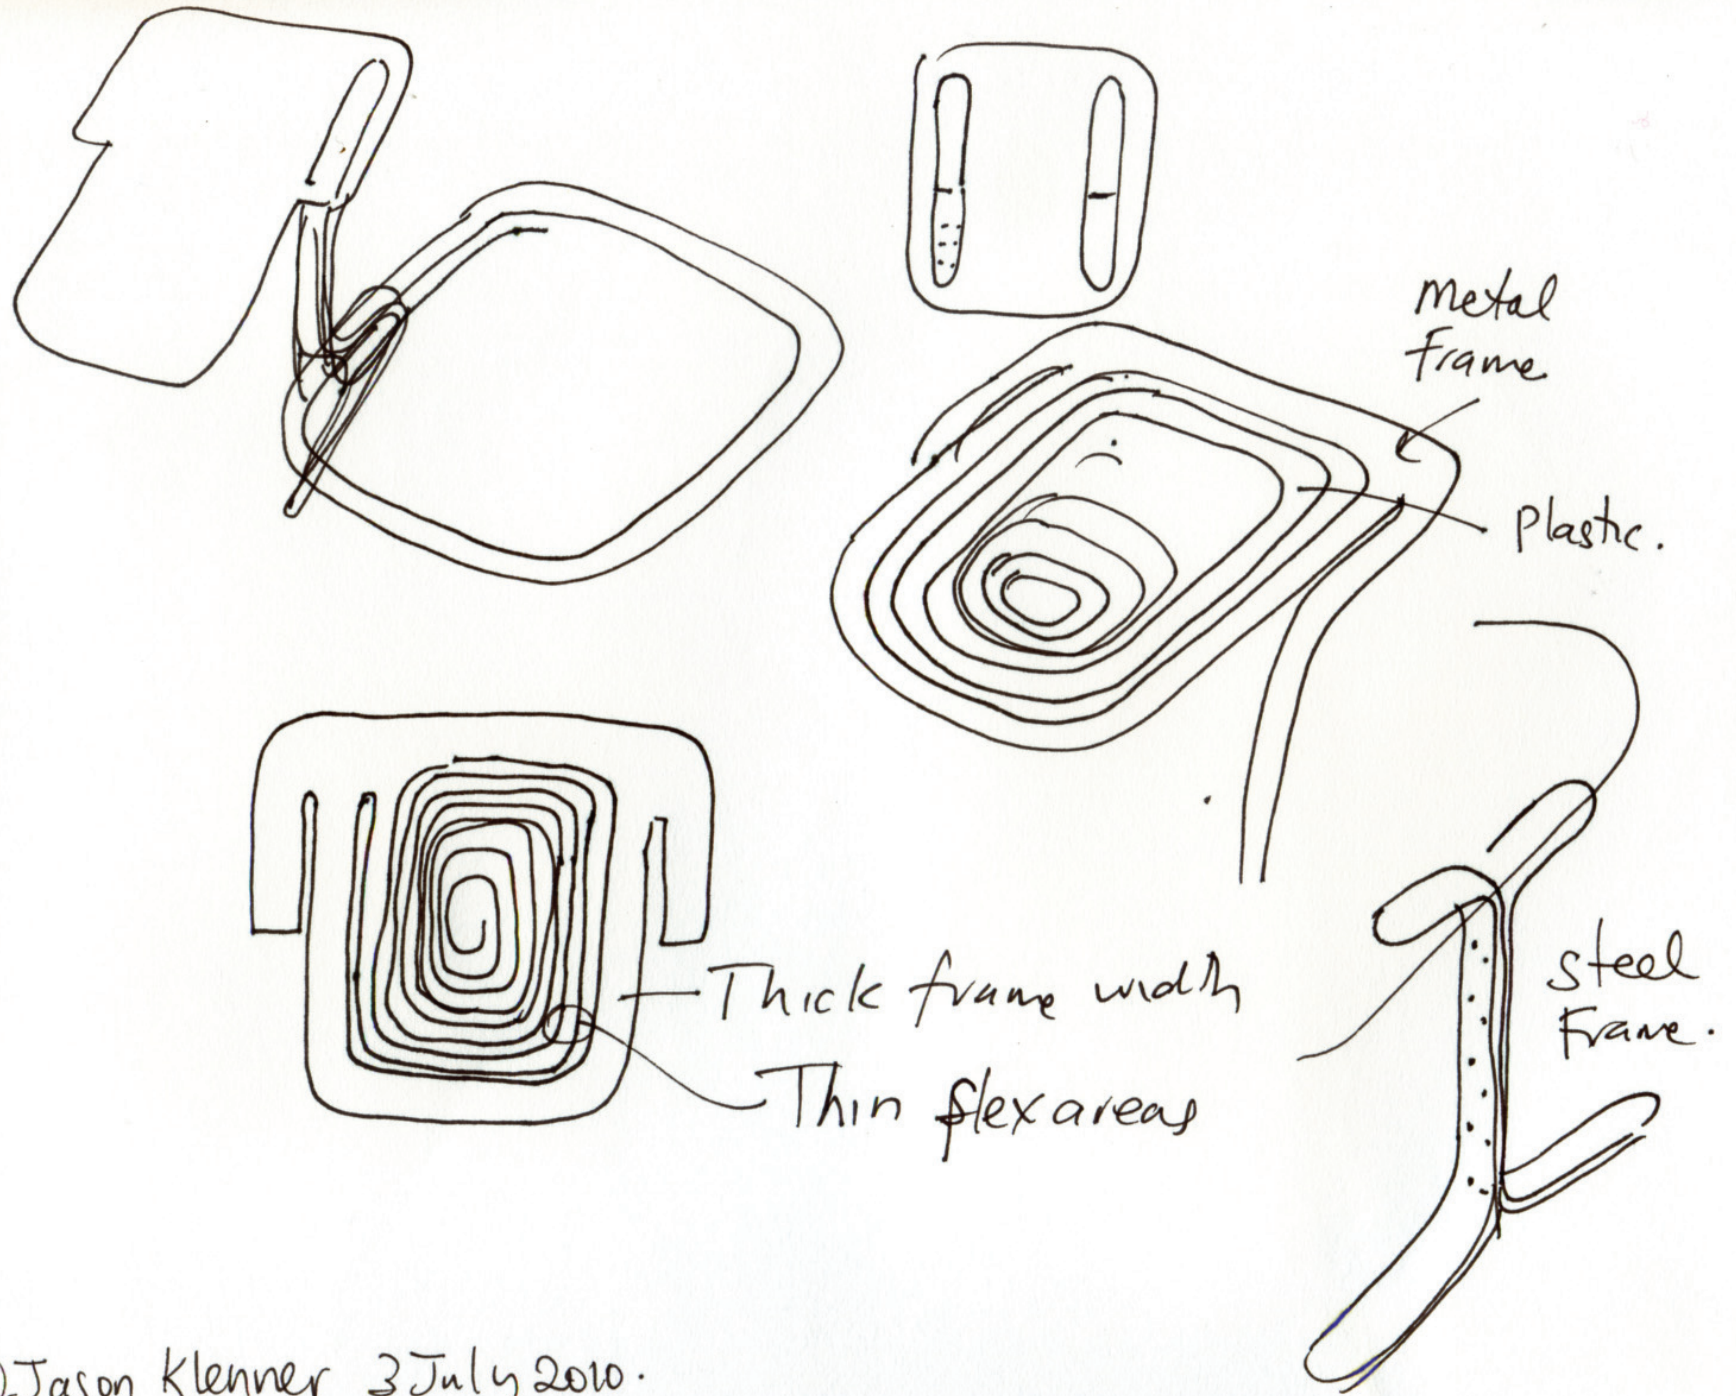 metal
frame
plastic.
Thick frame width
Thin flex areas
steel
Frame.
Jason Klenner 3 July 2010.